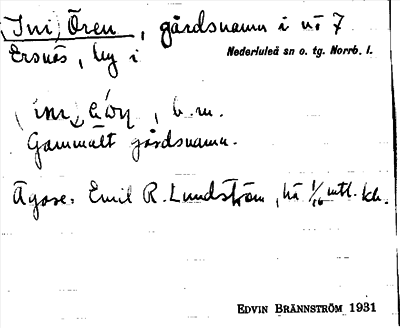 (Ini) Ören, gårdsnamn i nr 7
Ersnäs, by i Nederluleå sn o. tg. Norrb. l.
b. m.
Gammalt gårdsnamn.
Ägare: Emil R. Lundström, 1/16 mtl.
EDVIN BRÄNNSTRÖM 1931